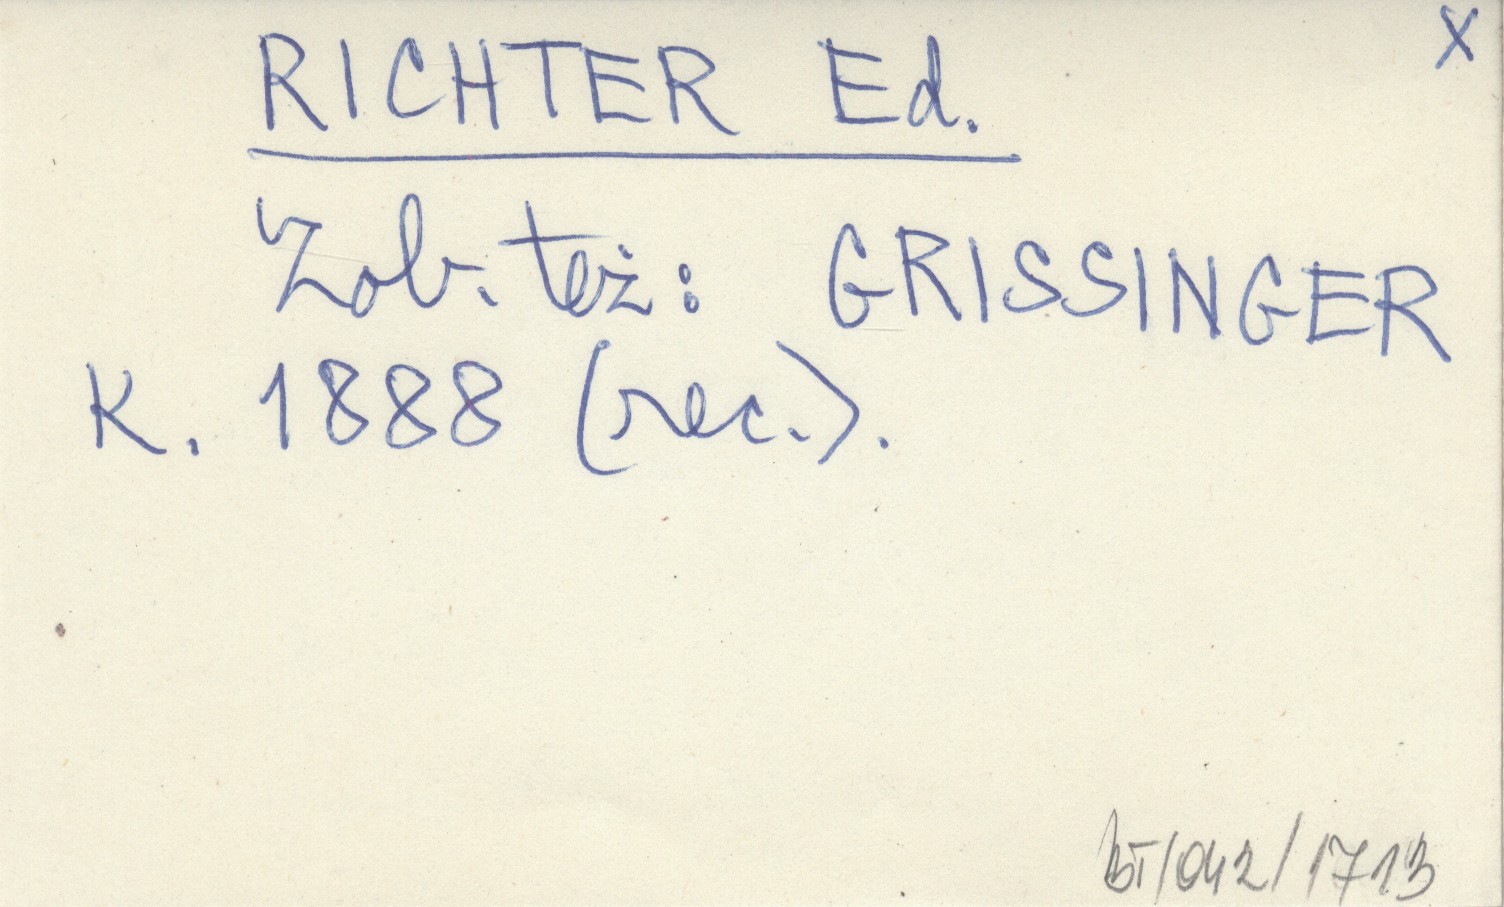 X
RICHTER Ed.
Zob. też: GRISSINGER
K. 1888 (rec.).
BT/042/1713